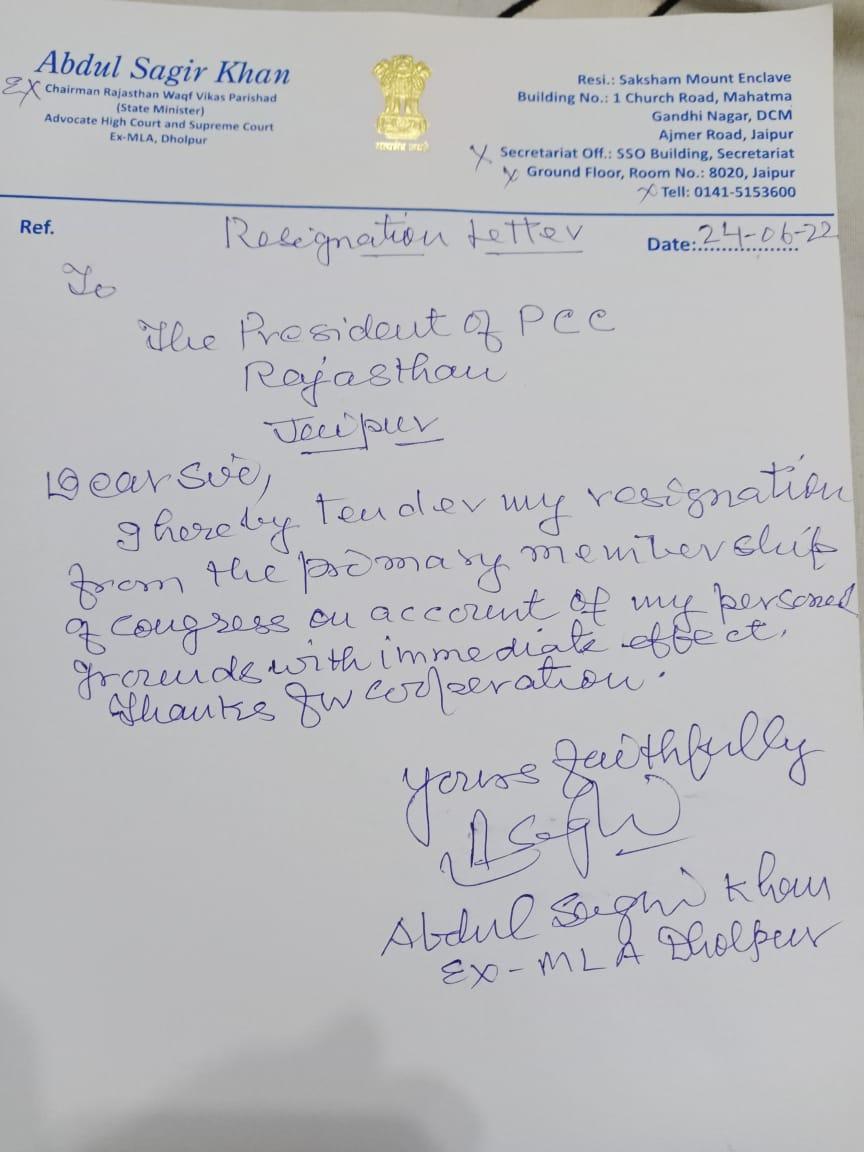 Abdul Sagir Khan
EX Chairman Rajasthan Waqf Vikas Parishad
(State Minister)
Advocate High Court and Supreme Court
Ex-MLA, Dholpur
Resi.: Saksham Mount Enclave
Building No.: 1 Church Road, Mahatma
Gandhi Nagar, DCM
Ajmer Road, Jaipur
X Secretariat Off.: SSO Building, Secretariat
X Ground Floor, Room No.: 8020, Jaipur
X Tell: 0141-5153600
Ref.
Resignation Letter
Date:24-06-22
To
The President of PCC
Rajasthan
Jaipur
Dear Sir,
I hereby tender my resignation
from the primary membership
of Congress on account of my personal
grounds with immediate effect.
Thanks for cooperation.
Yours faithfully
Abdul Saghir Khan
EX-MLA Dholpur